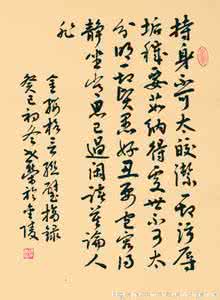 持身不可太皎潔一切污辱
垢穢要茹納得處世不可太
分明一切賢愚好丑要包容得
静坐常思己過闲談莫論人
非
金纓格言聯璧摘録
癸巳初冬榮於金陵